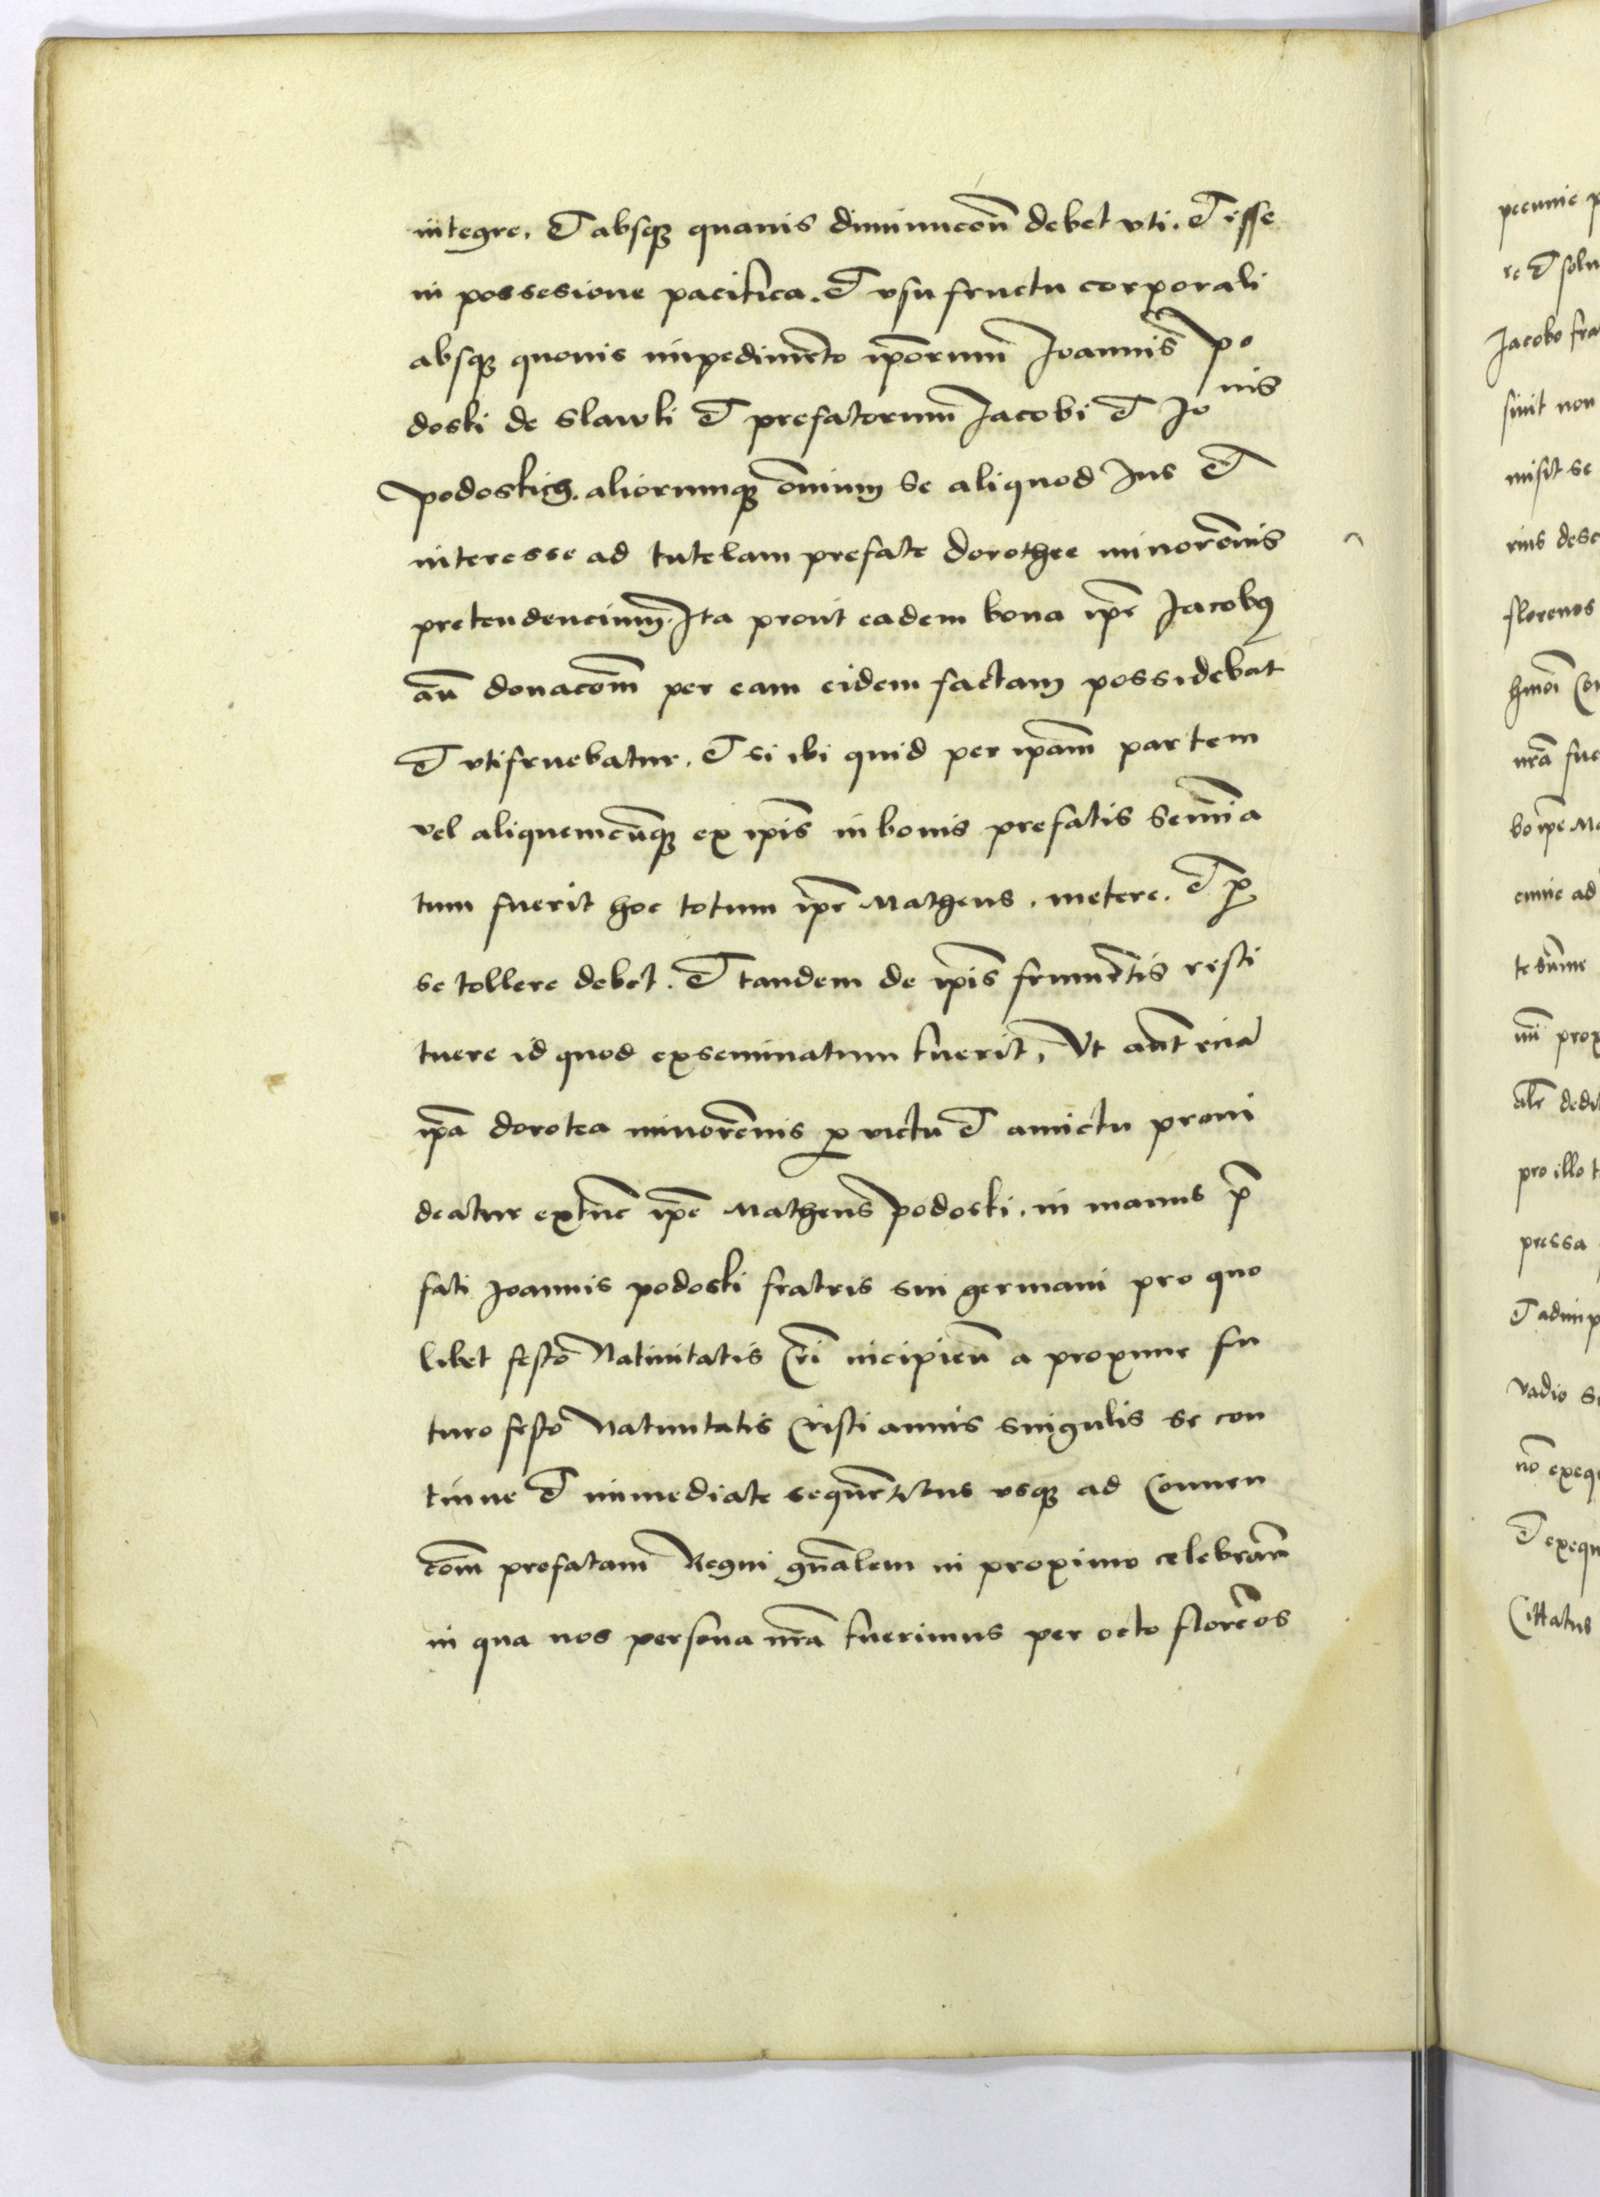 integre. Et absq quauis diminucōn debet vti. Et esse
in possesione pacifica. Et vsufructu corporali
absq quouis impedimēto ipōrum Joannis Po
doski de Slawki Et prefatorum Jacobi Et Jo nis
podoskich. aliorumq omium se aliquod Jus Et
interesse ad tutelam prefate dorothee minorēnis
pretendencium. Ita prout eadem bona ipē Jacobus
an̄ donacōm per eam eidem factam possidebat
Et vtifruebatur. Et si ibi quid per ipam partem
vel aliquemcūq ex ipīs in bonis prefatis Semīa
tum fuerit hoc totum ipē Matheus. metere. Et p
se tollere debet. Et tandem de ipīs frumētis resti
tuere id quod exseminatum fuerit, Vt aūt
ipā dorotea minorēnis p victu Et amictu proui
deatur extūc ipē Matheus podoski. in manus p̄
fati Joannis podoski fratris sui germani pro quo
libet festo Natiuitatis Cri incipien̄ a proxime fu
turo festo Natiuitatis Cristi annis singulis se con
tinue Et immediate sequētibus vsq ad Conuen
cōm prefatam Regni gn̄alem in proximo celebran̄
in qua nos persona nrā fuerimus per octo florēos
pecunie p
re Et solu
Jacobo fra
sint non
misit se
rius desc
florenos
hmōi Con
nrā fue
bo ipē Ma
cunie ad
te
prox
alr̄ dedit
pro illo t
pressa
Et adimp
vadio s
nō exequ
Et exequ
Cittatus